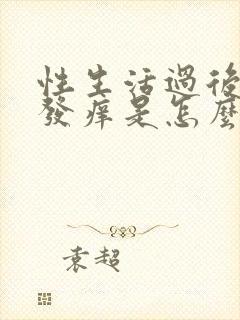 性生活過後
發癢是怎麼
袁超